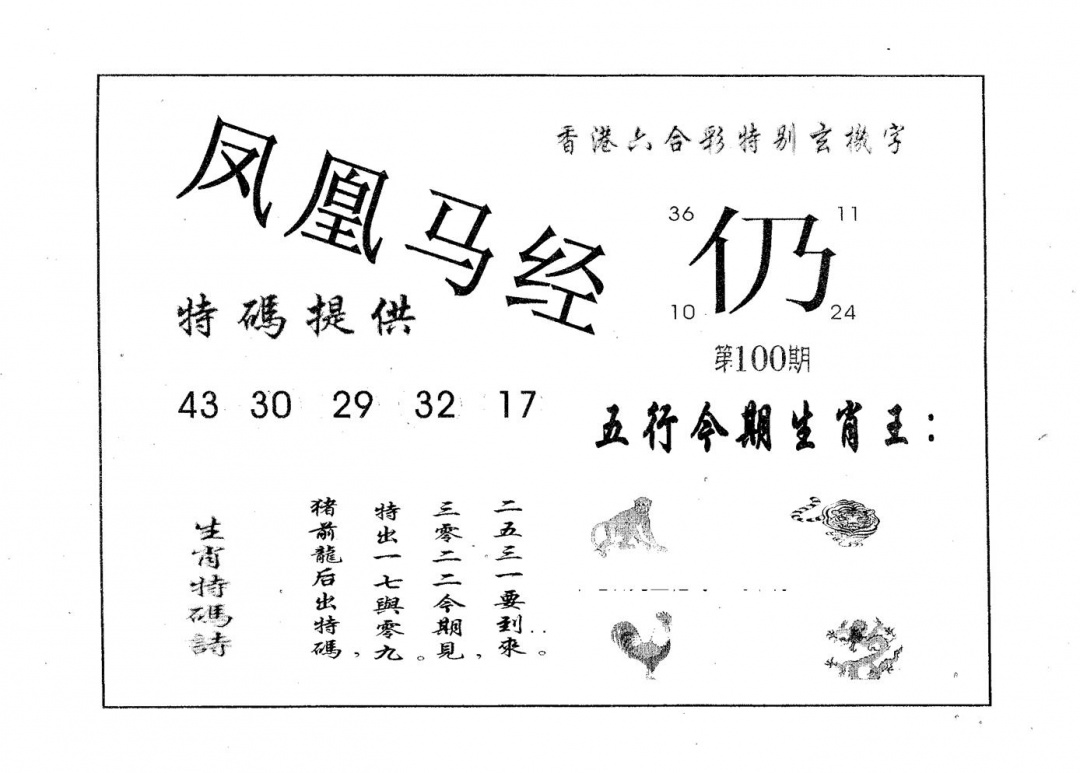 凤凰马经
香港六合彩特别玄機字
36 11
仍
10 24
第100期
特碼提供
43 30 29 32 17
五行今期生肖王：
生肖特碼詩
猪前龍后出特碼，
特出一七與零九。
三零二二今期見，
二五三一要到來。